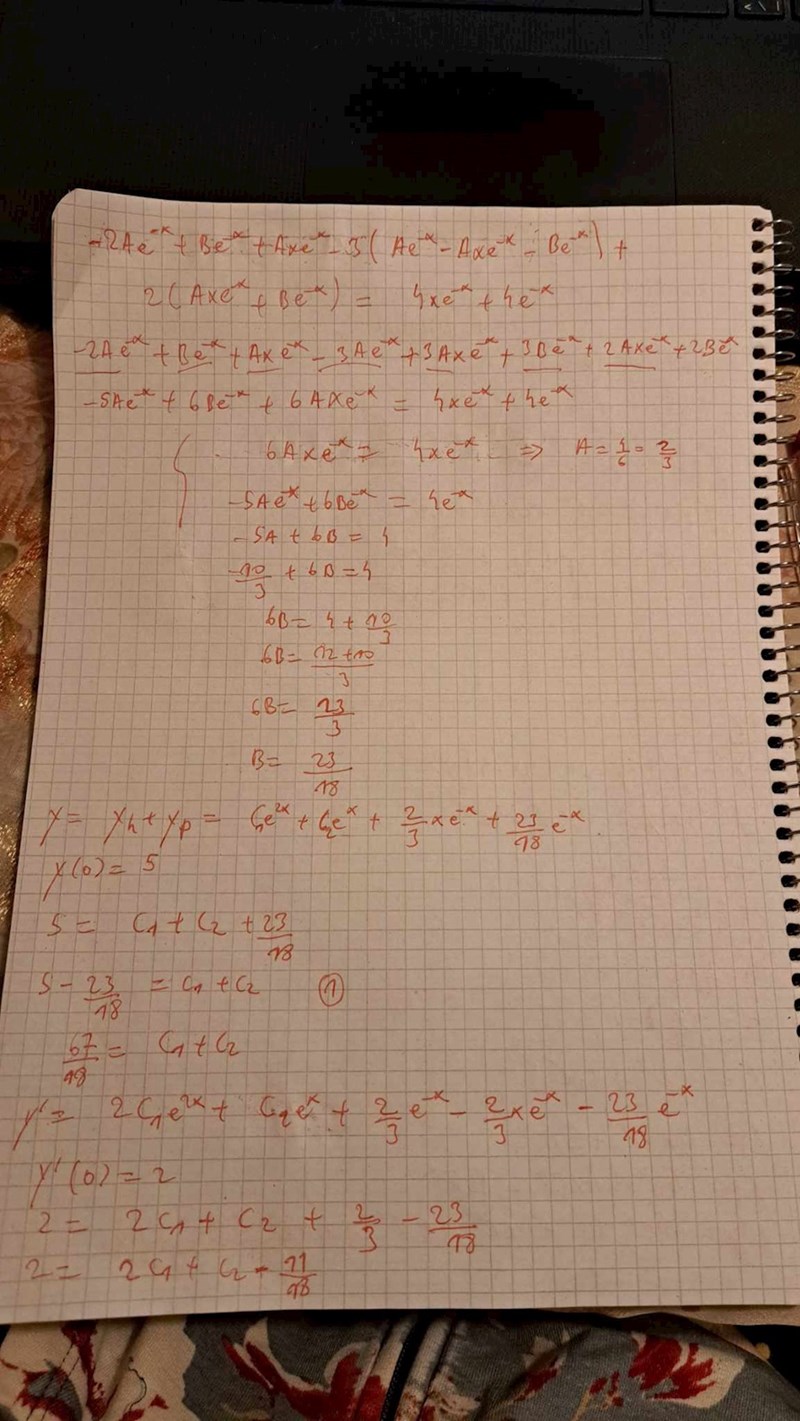 -2Ae^-x + Be^-x + Axe^-x - 3(Ae^-x - Axe^-x - Be^-x) +
2(Axe^-x + Be^-x) = 4xe^-x + 4e^-x
-2Ae^-x + Be^-x + Axe^-x - 3Ae^-x + 3Axe^-x + 3Be^-x + 2Axe^-x + 2Be^-x
-5Ae^-x + 6Be^-x + 6Axe^-x = 4xe^-x + 4e^-x
6Axe^-x = 4xe^-x => A = 4/6 = 2/3
-5Ae^-x + 6Be^-x = 4e^-x
-5A + 6B = 4
-10/3 + 6B = 4
6B = 4 + 10/3
6B = (12+10)/3
6B = 23/3
B = 23/18
y = yh + yp = C1e^2x + C2e^x + 2/3 xe^-x + 23/18 e^-x
y(0) = 5
5 = C1 + C2 + 23/18
5 - 23/18 = C1 + C2 ①
67/18 = C1 + C2
y' = 2C1e^2x + C2e^x + 2/3 e^-x - 2/3 xe^-x - 23/18 e^-x
y'(0) = 2
2 = 2C1 + C2 + 2/3 - 23/18
2 = 2C1 + C2 - 11/18